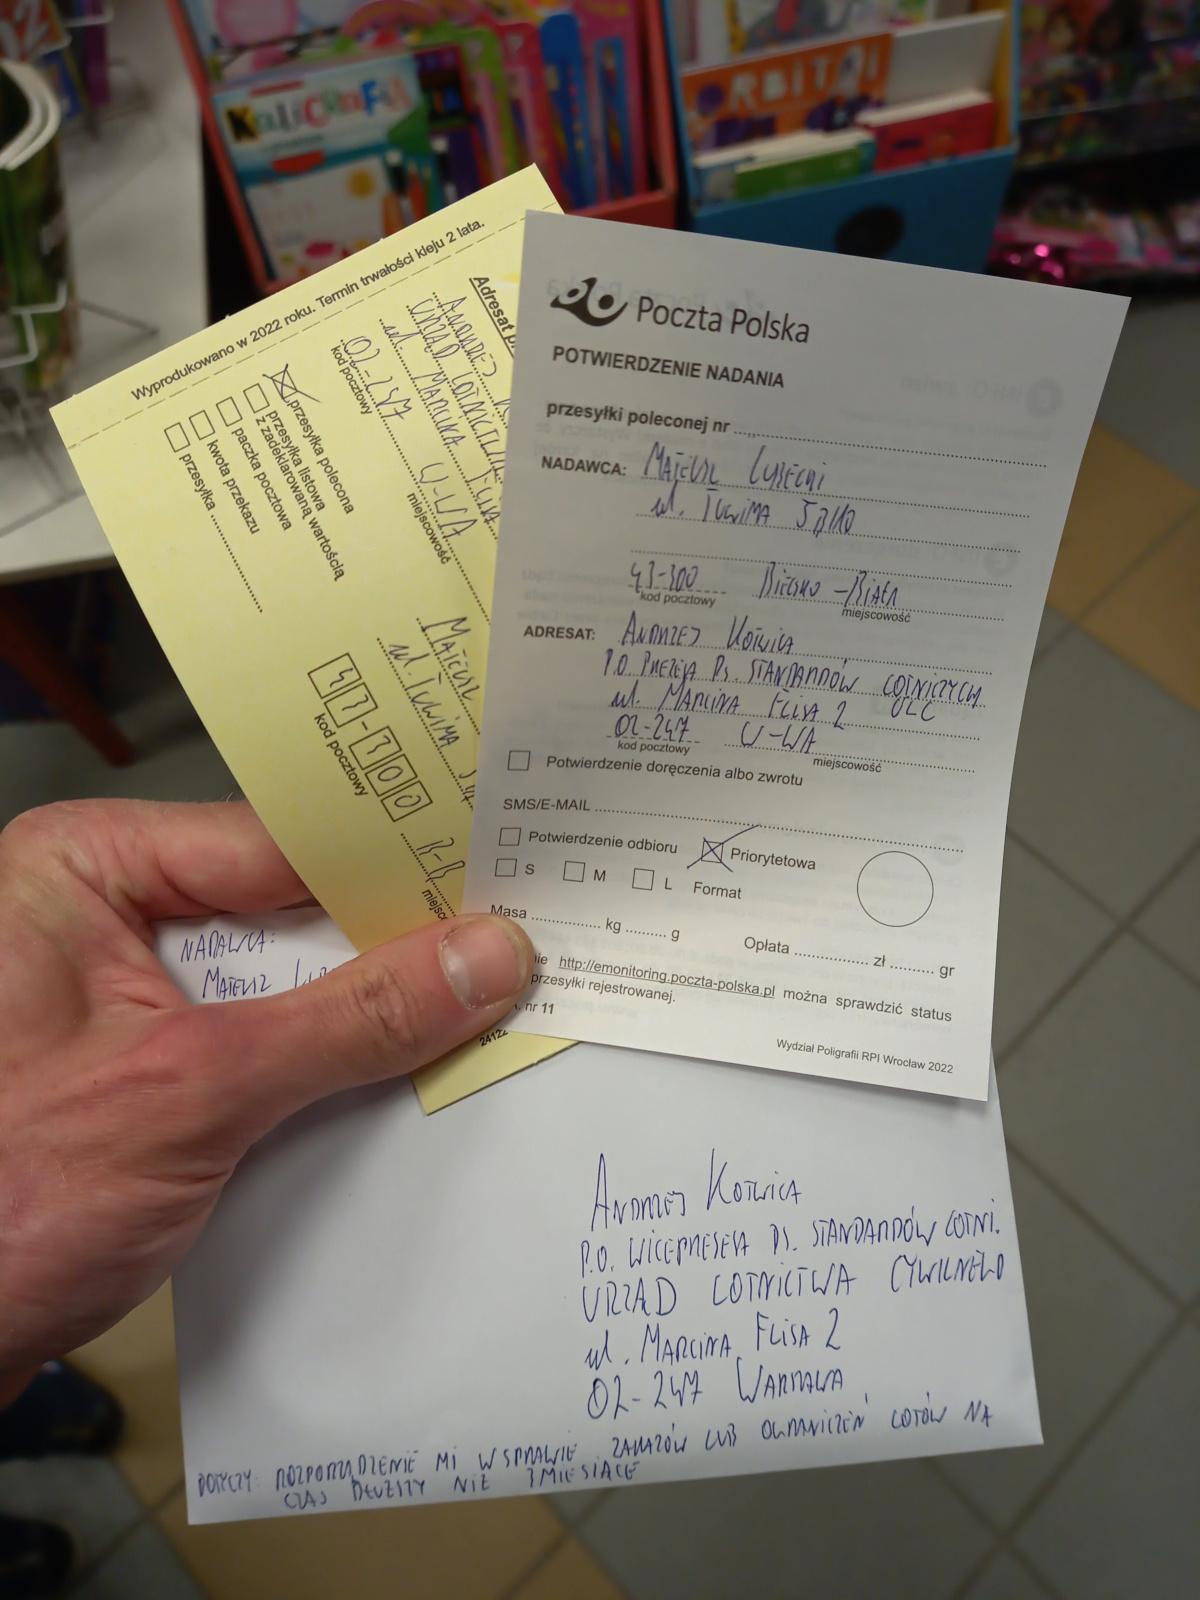 Wyprodukowano w 2022 roku. Termin trwałości kleju 2 lata.
Adresat
ANDRZEJ
URZĄD LOTNICTWA
ul. MARCINA FLISA
02-247 W-WA
kod pocztowy miejscowość
przesyłka polecona
przesyłka listowa
z zadeklarowaną wartością
paczka pocztowa
kwota przekazu
przesyłka
MATEUSZ
ul. TUWIMA
43-300 B-B
kod pocztowy
24122
Poczta Polska
POTWIERDZENIE NADANIA
przesyłki poleconej nr
NADAWCA: MATEUSZ LUBECKI
ul. TUWIMA
43-300 BIELSKO-BIAŁA
kod pocztowy miejscowość
ADRESAT: ANDRZEJ KOTWICA
P.O. PREZESA DS. STANDARDÓW LOTNICZYCH
ul. MARCINA FLISA 2 ULC
02-247 W-WA
kod pocztowy miejscowość
Potwierdzenie doręczenia albo zwrotu
SMS/E-MAIL
Potwierdzenie odbioru Priorytetowa
S M L Format
Masa kg g Opłata zł gr
http://emonitoring.poczta-polska.pl można sprawdzić status
przesyłki rejestrowanej.
nr 11
Wydział Poligrafii RPI Wrocław 2022
NADAWCA:
MATEUSZ
ANDRZEJ KOTWICA
P.O. WICEPREZESA DS. STANDARDÓW LOTNI.
URZĄD LOTNICTWA CYWILNEGO
ul. MARCINA FLISA 2
02-247 WARSZAWA
DOTYCZY: ROZPORZĄDZENIE MI W SPRAWIE ZAKAZÓW LUB OGRANICZEŃ LOTÓW NA
CZAS DŁUŻSZY NIŻ 3 MIESIĄCE